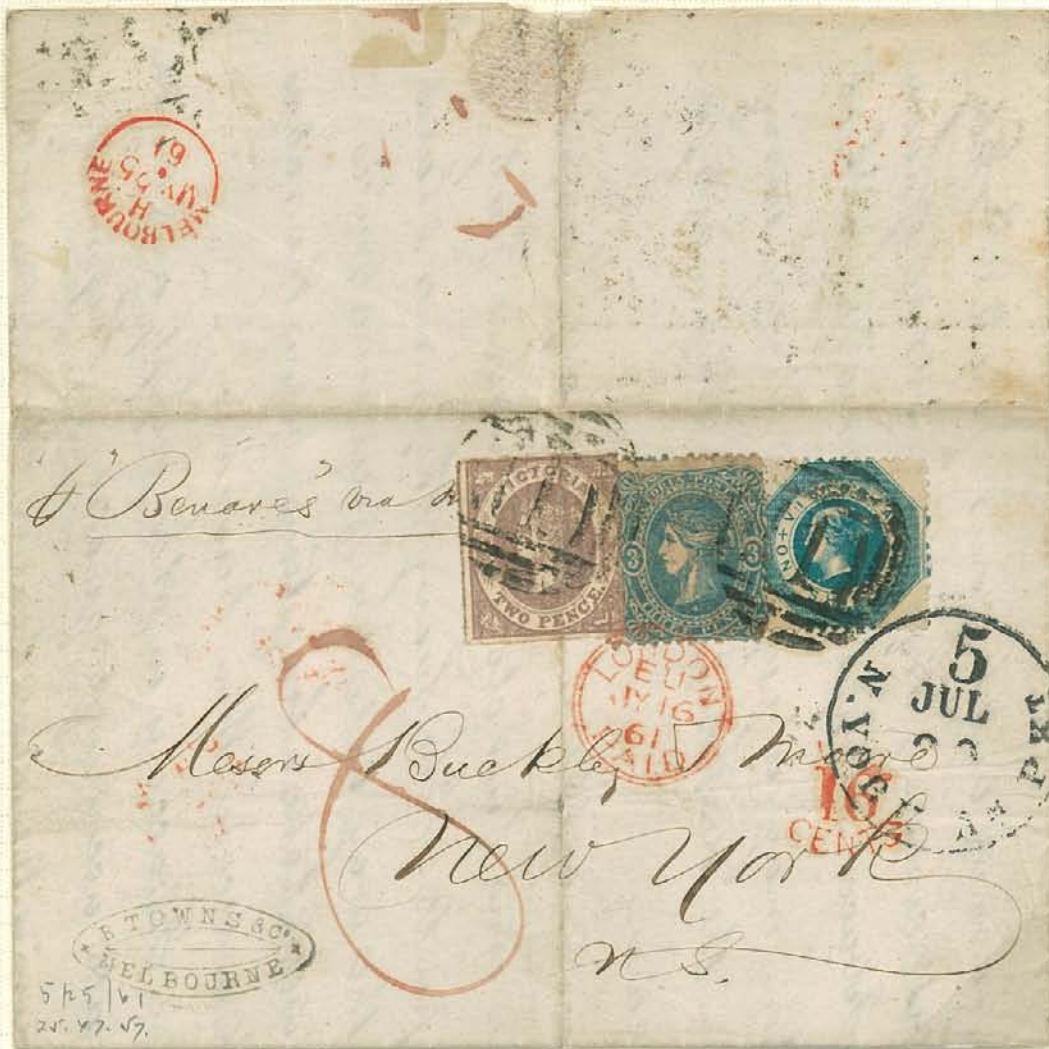 MELBOURNE
H
MY 25
61
"Benares" via
VICTORIA
TWO PENCE
3 3
LONDON
EU
JY 16
61
PAID
5
JUL
BOSON
AM PKT
16
CENTS
8
Messrs Buckley Moore
New York
R TOWNS & Co
MELBOURNE
5/25/61